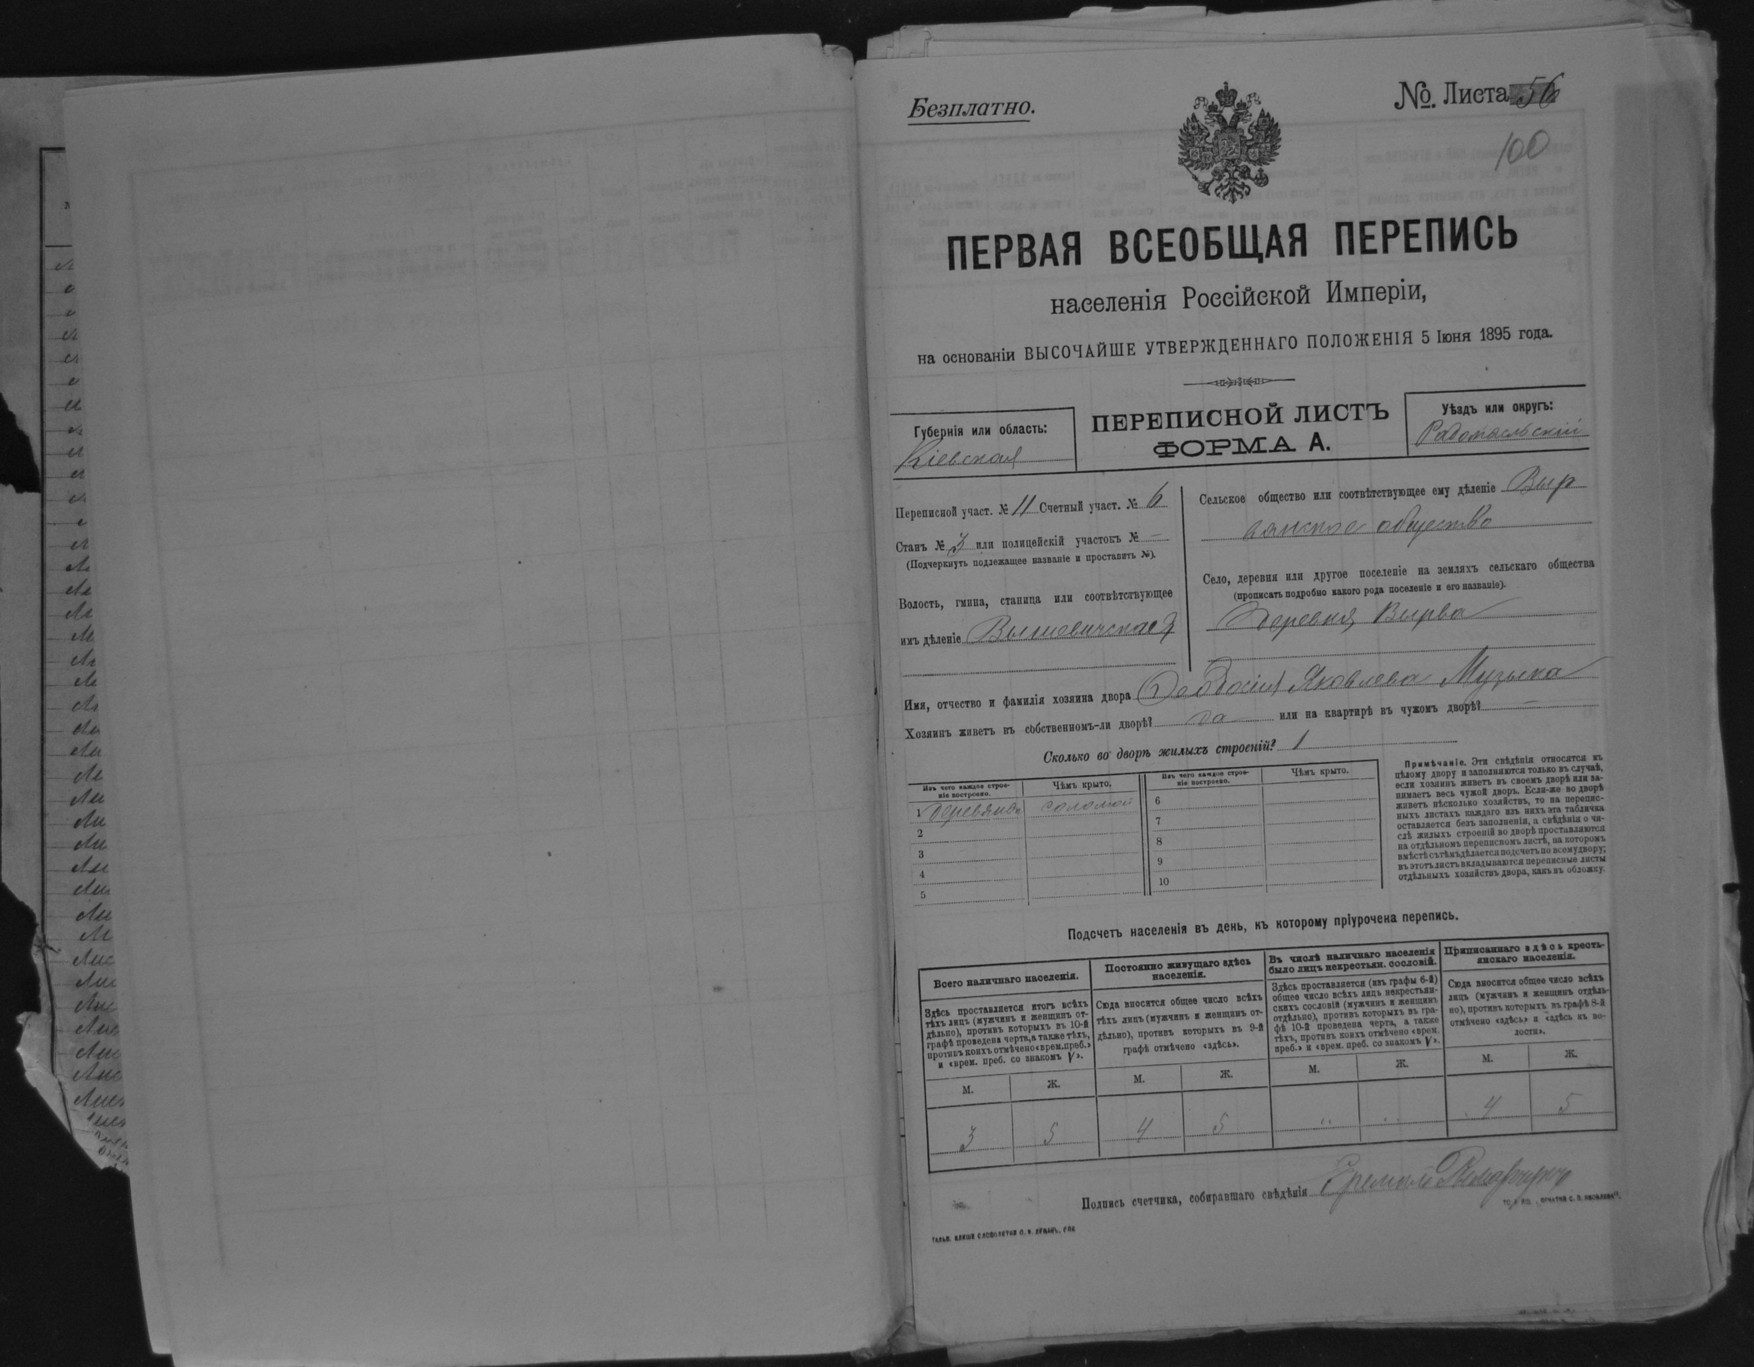 Безплатно.
№ Листа 56
100
ПЕРВАЯ ВСЕОБЩАЯ ПЕРЕПИСЬ
населенія Россійской Имперіи,
на основаніи ВЫСОЧАЙШЕ УТВЕРЖДЕННАГО ПОЛОЖЕНІЯ 5 Іюня 1895 года.
Губернія или область:
Кіевская
ПЕРЕПИСНОЙ ЛИСТЪ
ФОРМА А.
Уѣздъ или округъ:
Радомысльскій
Переписной участ. № 11 Счетный участ. № 6
Станъ № 3 или полицейскій участокъ № —
(Подчеркнуть подлежащее названіе и проставить №).
Волость, гмина, станица или соотвѣтствующее
имъ дѣленіе Вышевичская
Сельское общество или соотвѣтствующее ему дѣленіе Выр
вянское общество
Село, деревня или другое поселеніе на земляхъ сельскаго общества
(прописать подробно какого рода поселеніе и его названіе).
Деревня Вырва
Имя, отчество и фамилія хозяина двора Ѳеодосія Яковлева Музыка
Хозяинъ живетъ въ собственномъ-ли дворѣ? да или на квартирѣ въ чужомъ дворѣ? —
Сколько во дворѣ жилыхъ строеній? 1
Изъ чего каждое строе-
ніе построено.
Чѣмъ крыто.
Изъ чего каждое строе-
ніе построено.
Чѣмъ крыто.
1 деревяное соломой
2
3
4
5
6
7
8
9
10
Примѣчаніе. Эти свѣдѣнія относятся къ
цѣлому двору и заполняются только въ случаѣ,
если хозяинъ живетъ въ своемъ дворѣ или за-
нимаетъ весь чужой дворъ. Если-же во дворѣ
живетъ нѣсколько хозяйствъ, то на перепис-
ныхъ листахъ каждаго изъ нихъ эта табличка
оставляется безъ заполненія, а свѣдѣнія о чи-
слѣ жилыхъ строеній во дворѣ проставляются
на отдѣльномъ переписномъ листѣ, на которомъ
вмѣстѣ съ тѣмъ дѣлается подсчетъ по всему двору;
въ этотъ листъ вкладываются переписные листы
отдѣльныхъ хозяйствъ двора, какъ въ обложку.
Подсчетъ населенія въ день, къ которому пріурочена перепись.
Всего наличнаго населенія.
Здѣсь проставляется итогъ всѣхъ
тѣхъ лицъ (мужчинъ и женщинъ от-
дѣльно), противъ которыхъ въ 10-й
графѣ проведена черта, а также тѣхъ,
противъ коихъ отмѣчено «врем. преб.»
и «врем. преб. со знакомъ V».
М. Ж.
3 5
Постоянно живущаго здѣсь
населенія.
Сюда вносится общее число всѣхъ
тѣхъ лицъ (мужчинъ и женщинъ от-
дѣльно), противъ которыхъ въ 9-й
графѣ отмѣчено «здѣсь».
М. Ж.
4 5
Въ числѣ наличнаго населенія
было лицъ некрестьян. сословій.
Здѣсь проставляется (изъ графы 6-й)
общее число всѣхъ лицъ некрестьян-
скихъ сословій (мужчинъ и женщинъ
отдѣльно), противъ которыхъ въ гра-
фѣ 10-й проведена черта, а также
тѣхъ, противъ коихъ отмѣчено «врем.
преб.» и «врем. преб. со знакомъ V».
М. Ж.
.. ..
Приписаннаго здѣсь кресть-
янскаго населенія.
Сюда вносится общее число всѣхъ
лицъ (мужчинъ и женщинъ отдѣль-
но), противъ которыхъ въ графѣ 8-й
отмѣчено «здѣсь» и «здѣсь къ во-
лости».
М. Ж.
4 5
Подпись счетчика, собиравшаго свѣдѣнія